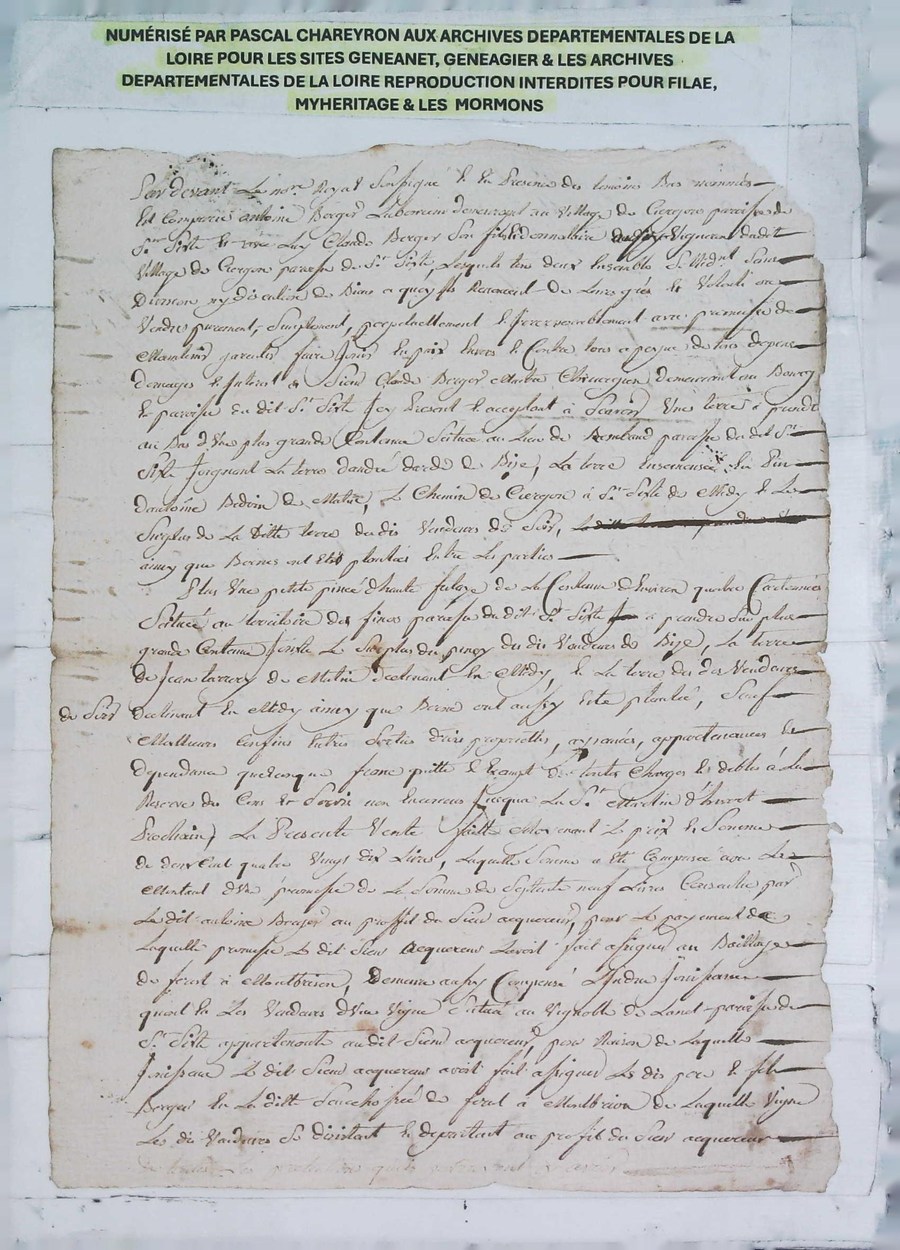 NUMÉRISÉ PAR PASCAL CHAREYRON AUX ARCHIVES DEPARTEMENTALES DE LA
LOIRE POUR LES SITES GENEANET, GENEAGIER & LES ARCHIVES
DEPARTEMENTALES DE LA LOIRE REPRODUCTION INTERDITES POUR FILAE,
MYHERITAGE & LES MORMONS
Par devant Le nore Royal Soussigné & En Presence des temoins Bas nommés
Est Comparue antoine Berger Laboureur demeurant au Village de Ciergon paroisse de
St Sixte & avec Luy Claude Berger Son fils & donnataire Vigneron dudit
Village de Ciergon paroisse de St Sixte Lesquels tous deux Ensemble Solidnt Sans
Division ny discution de Biens a quoy ils Renoncent De Leurs grés & Volonté ont
Vendus purement, Simplement, perpetuellement & Irrevocablement avec promesse de
Maintenir garantir faire Jouir En paix Envers & Contre tous a peyne de tous depens
domages & Interet a Sieur Claude Berger Maitre Chirurgien demeurant au Bourg
& paroisse du dit St Sixte Icy Present & acceptant à Scavoir Une terre à prendre
au Bas d'Une plus grande Contenue Scituée au Lieu de paroisse du dit St
Sixte Joignant La terre d'andré de Bize, La terre
d'antoine de Matin, Le Chemin de Ciergon à St Sixte de Midy & Le
Surplus de La Ditte terre du dis Vendeurs de Soir,
ainsy que Bornes ont Eté plantées Entre Les parties
Plus Une petite pinée d'haute futaye de La Contenue d'Environ quatre Cartonnées
Scituée au territoire des fines paroisse du dit St Sixte à prendre Sur plus
grande Contenue Jointe Le Surplus du piney des dis Vendeurs de Bize, La terre
de Jean de Matin Declinant En Midy, & La terre des dis Vendeurs
de Soir Declinant En Midy ainsy que Borne ont aussy Eté plantée, Sauf
Meilleurs Confins Entrés Sorties droits proprietés, aysances, appartenances &
dependance quelconque franc quitte & Exempt de toutes Charges & debtes à La
Reserve du Cens & Servis non Encourus Jusqua La St Martin d'hivert
Prochain, La Presente Vente faitte Moyenant Le prix & Somme
de deux Cent quatre Vingt dix Livres, Laquelle Somme a Eté Compensée avec Le
Montant d'Une promesse de La Somme de Septante neuf Livres Consentie par
Le dit antoine Berger au proffit du Sieur acquereur, pour Le payement de
Laquelle promesse Le dit Sieur Acquereur L'avoit fait assigner au Baillage
de forest à Montbrison, Demeure aussy Compensé L'Indue Jouissance
quont eu Les Vendeurs d'Une Vigne Scituée au Vignoble de paroisse de
St Sixte appartenante au dit Sieur acquereur, pour Raison de Laquelle
Jouissance Le dit Sieur acquereur avoit fait assigner Les dis pere & fils
Berger En La ditte Senechossée de forest à Montbrison de Laquelle Vigne
Les dis Vendeurs Se desistent & departent au proffit du Sieur acquereur